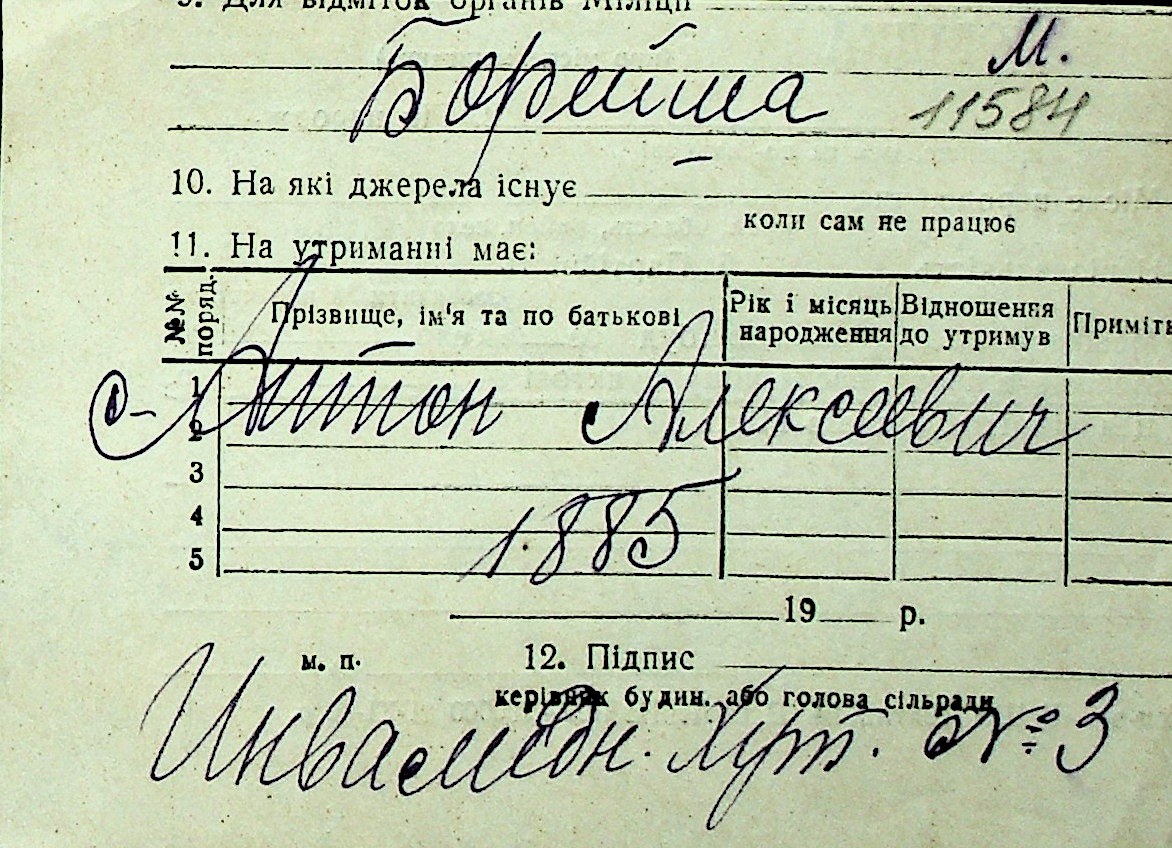 9. Для відміток органів Міліції
М.
Борейша 11584
10. На які джерела існує
коли сам не працює
11. На утриманні має:
№№ поряд. Прізвище, ім'я та по батькові Рік і місяць народження Відношення до утримув Приміт
1
Антон Алексеевич
2
3
4
1885
5
19 р.
м. п. 12. Підпис
керівник будин. або голова сільради
Инвалидн. хут. № 3